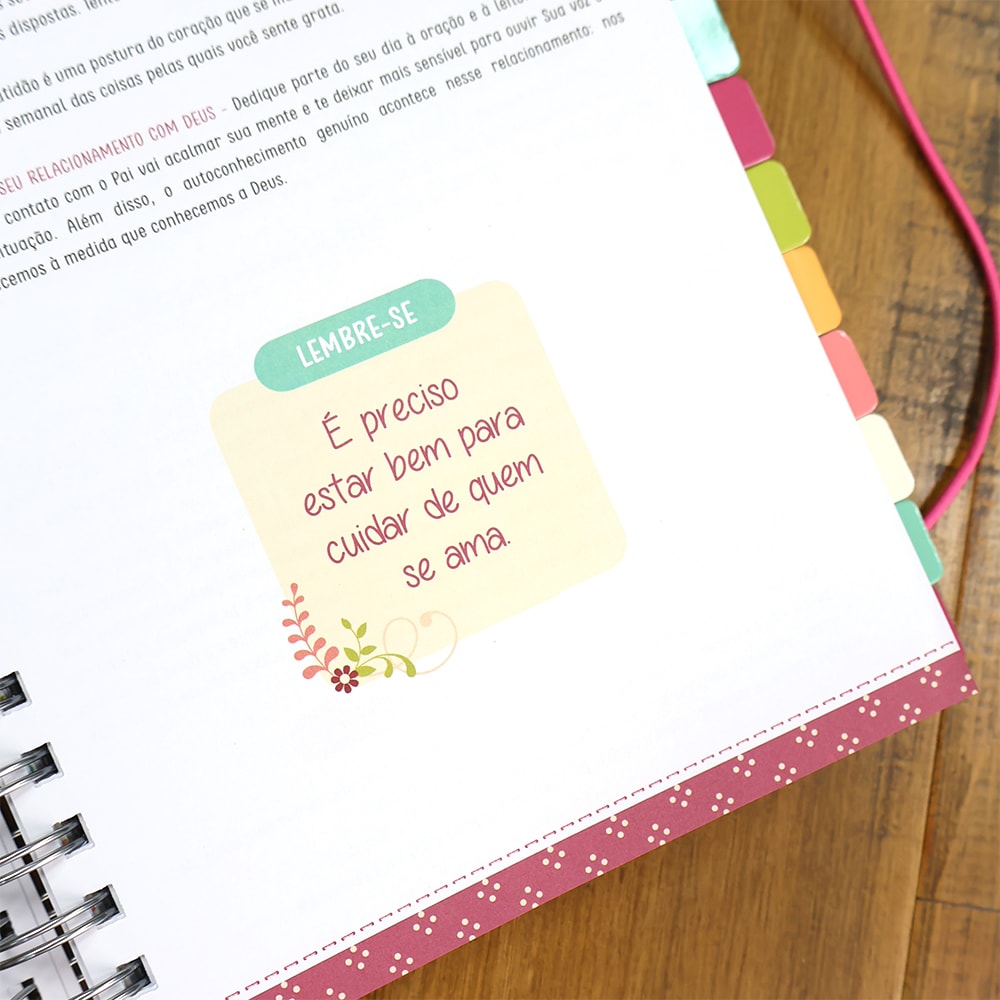 dispostas.
é uma postura do coração que se
semanal das coisas pelas quais você sente grata.
SEU RELACIONAMENTO COM DEUS - Dedique parte do seu dia à oração e à
contato com o Pai vai acalmar sua mente e te deixar mais sensível para ouvir Sua voz
Além disso, o autoconhecimento genuíno acontece nesse relacionamento: nos
à medida que conhecemos a Deus.
LEMBRE-SE
É preciso
estar bem para
cuidar de quem
se ama.